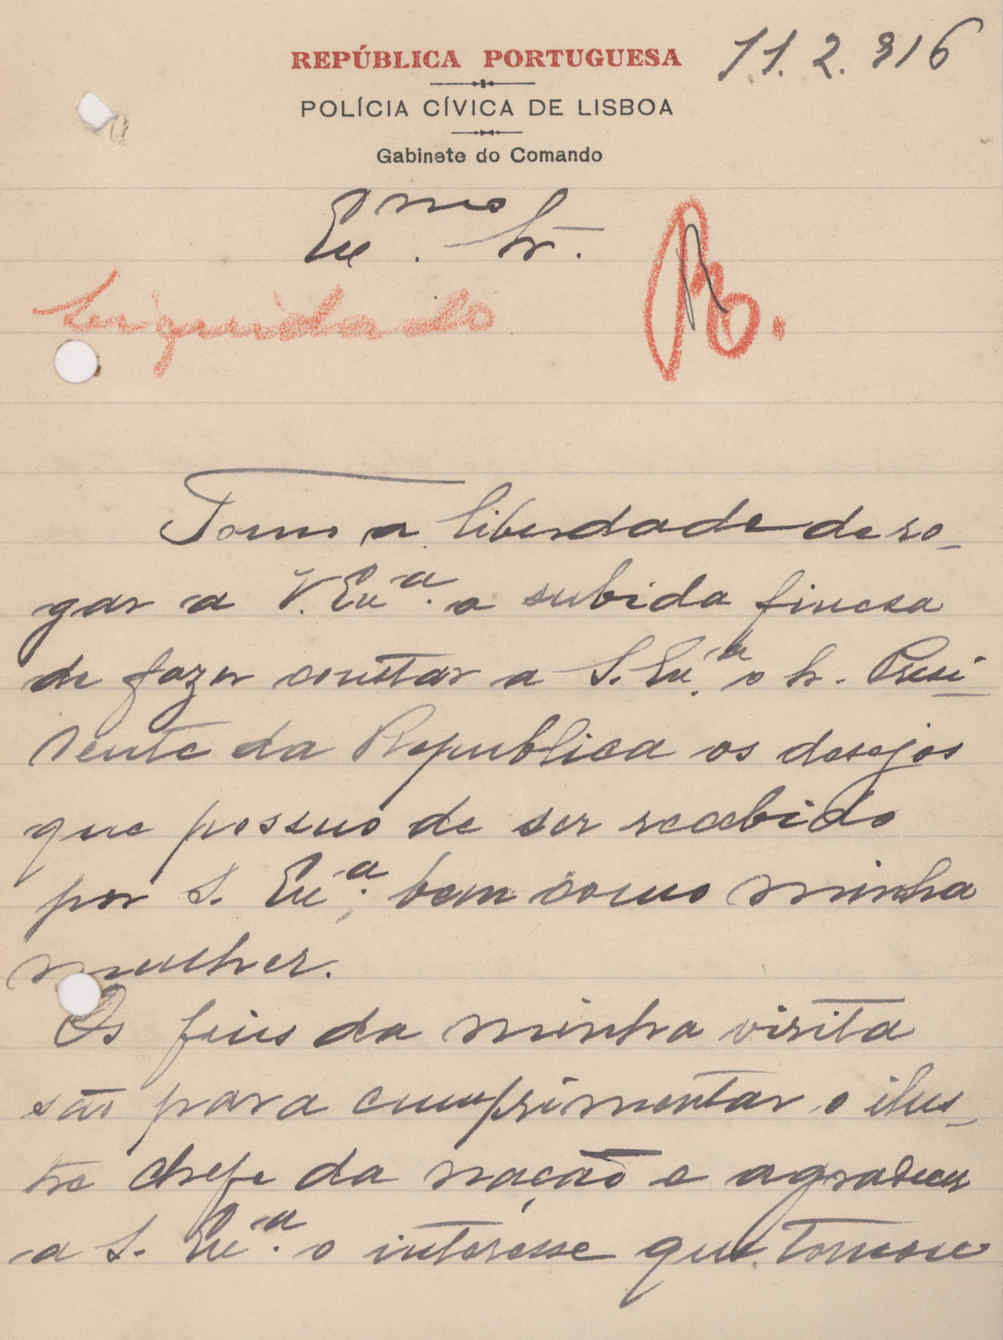 REPÚBLICA PORTUGUESA
11.2.916
POLÍCIA CÍVICA DE LISBOA
Gabinete do Comando
Exmo. Sr.
Liquidado
R.
Tomo a liberdade de ro-
gar a V. Exa. a subida finesa
de fazer constar a S. Exa. o Sr. Presi-
dente da Republica os desejos
que possuo de ser recebido
por S. Exa., bem como minha
mulher.
Os fins da minha visita
são para cumprimentar o ilus-
tre chefe da nação e agradecer
a S. Exa. o interesse que tomou